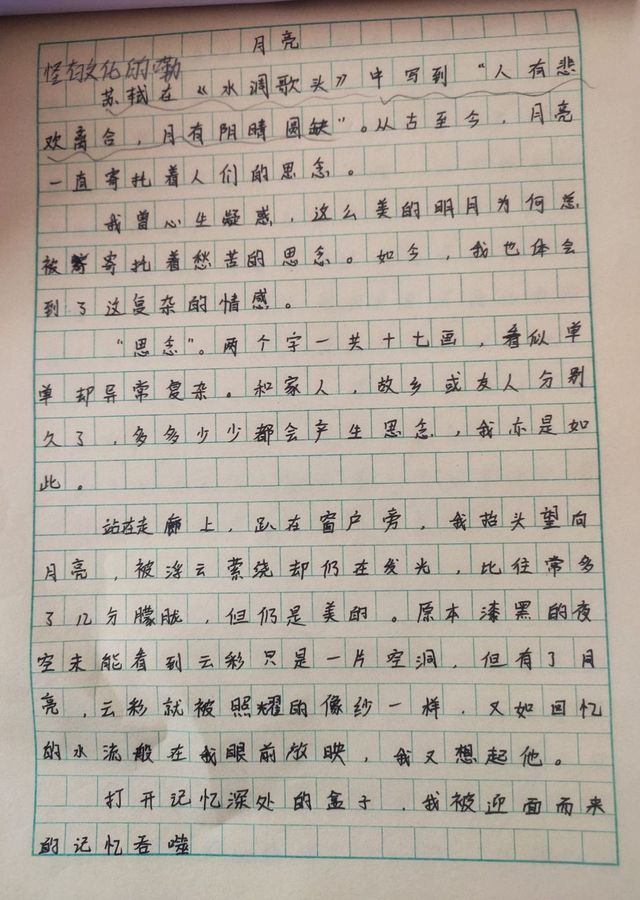 月亮
怪有文化的嘞
苏轼在《水调歌头》中写到“人有悲
欢离合，月有阴晴圆缺”。从古至今，月亮
一直寄托着人们的思念。
我曾心生疑惑，这么美的明月为何总
被寄托着愁苦的思念。如今，我也体会
到了这复杂的情感。
“思念”。两个字一共十七画，看似单
单却异常复杂。和家人，故乡或友人分别
久了，多多少少都会产生思念，我亦是如
此。
站在走廊上，趴在窗户旁，我抬头望向
月亮，被浮云萦绕却仍在发光，比往常多
了几分朦胧，但仍是美的。原本漆黑的夜
空未能看到云彩只是一片空洞，但有了月
亮，云彩就被照耀的像纱一样，又如回忆
的水流般在我眼前放映，我又想起他。
打开记忆深处的盒子，我被迎面而来
的记忆吞噬